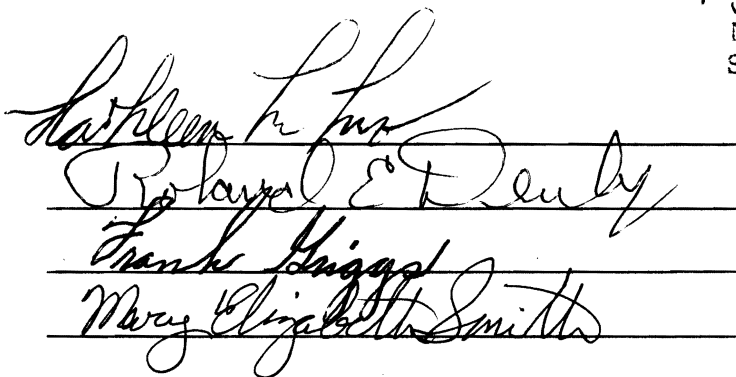 Kathleen
Roland E Denby
Frank Griggs
Mary Elizabeth Smith